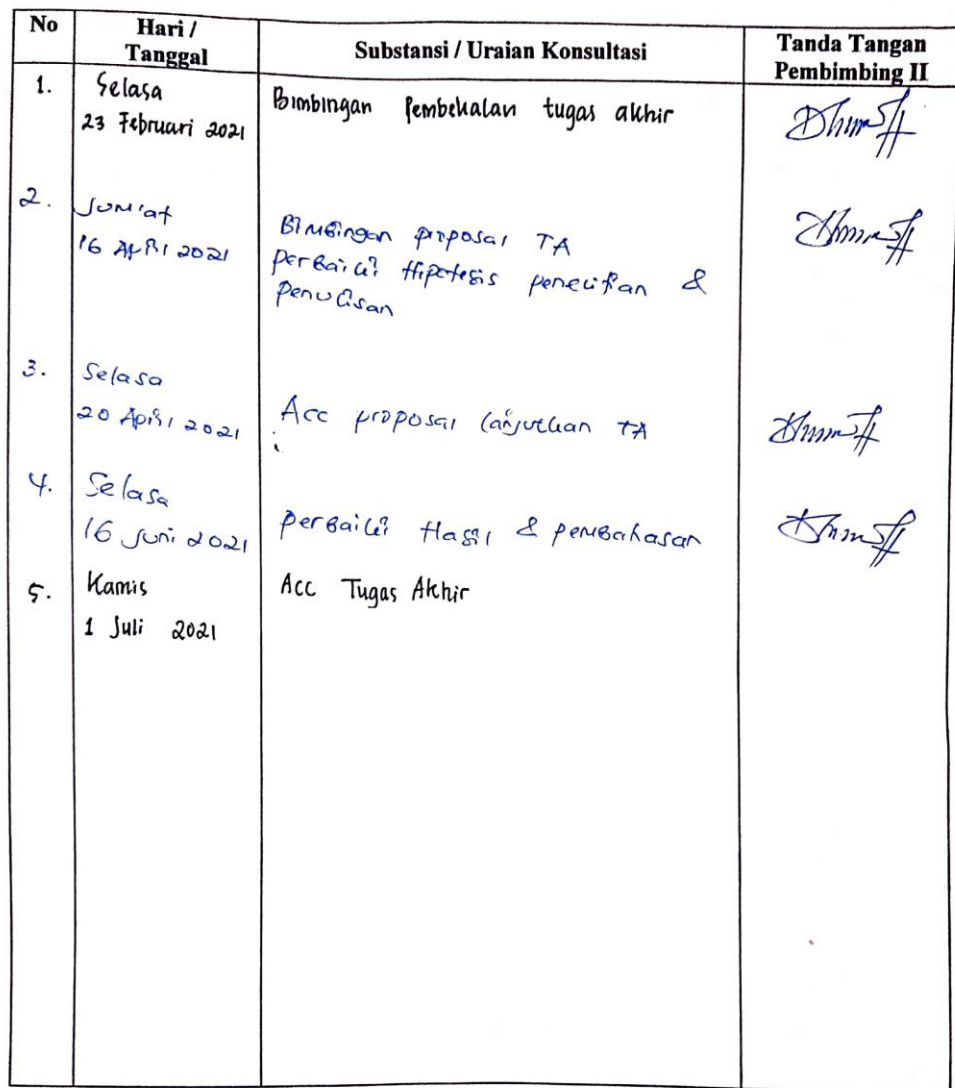 No
Hari /
Tanggal
Substansi / Uraian Konsultasi
Tanda Tangan
Pembimbing II
1.
Selasa
23 Februari 2021
Bimbingan Pembekalan tugas akhir
2.
Jum'at
16 April 2021
Bimbingan proposal TA
perbaiki Hipotesis penelitian &
penulisan
3.
Selasa
20 April 2021
Acc proposal lanjutkan TA
4.
Selasa
16 Juni 2021
perbaiki Hasil & pembahasan
5.
Kamis
1 Juli 2021
Acc Tugas Akhir